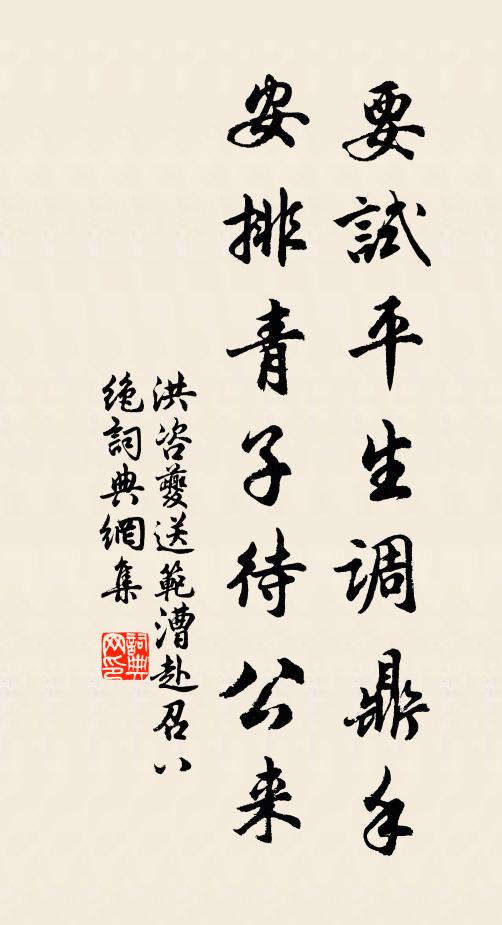 要試平生調鼎手
安排青子待公来
洪咨夔送範漕赴召八
絶詞典網集
詞典网印